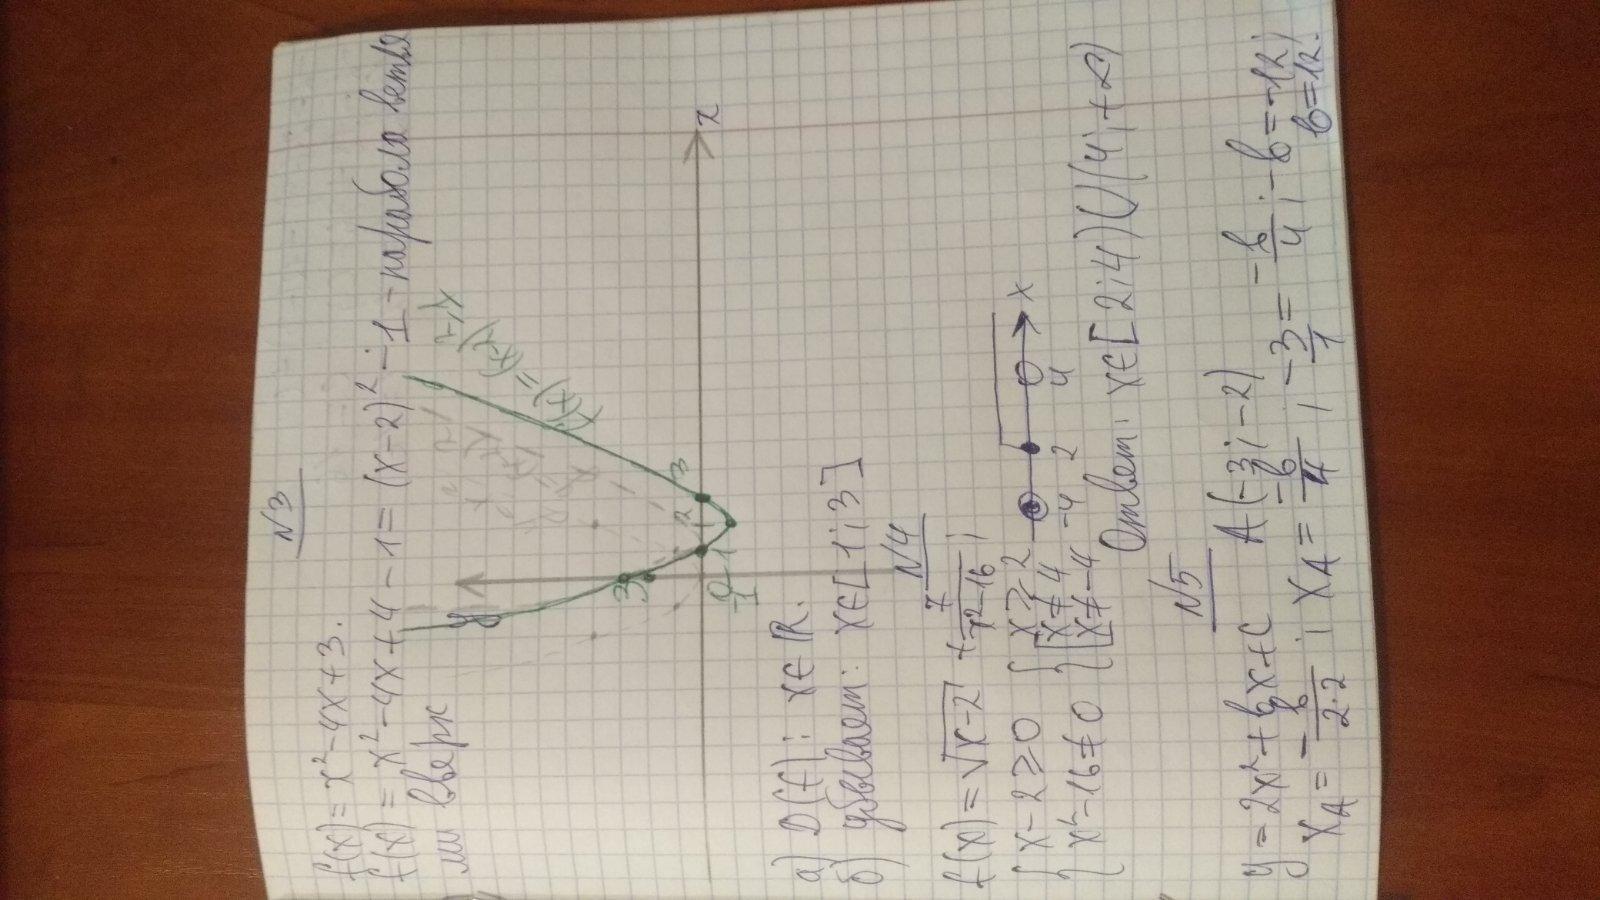 N3
f(x) = x² - 4x + 3.
f(x) = x² - 4x + 4 - 1 = (x-2)² - 1 - парабола ветвя
ми вверх
y
3
0
1
2
3
-1
x
а) D(f): x∈R.
б) убывает: x∈[1;3]
N4
f(x) = √(x-2) + 7/(x²-16);
{ x - 2 ≥ 0 { x ≥ 2
{ x² - 16 ≠ 0 { [ x ≠ 4
[ x ≠ -4
-4 2 4 x
Ответ: x∈[2;4)∪(4;+∞)
N5
y = 2x² + bx + c A(-3;-2)
x_A = -b/(2·2); x_A = -b/4; -3/1 = -b/4; -b = -12;
b = 12.